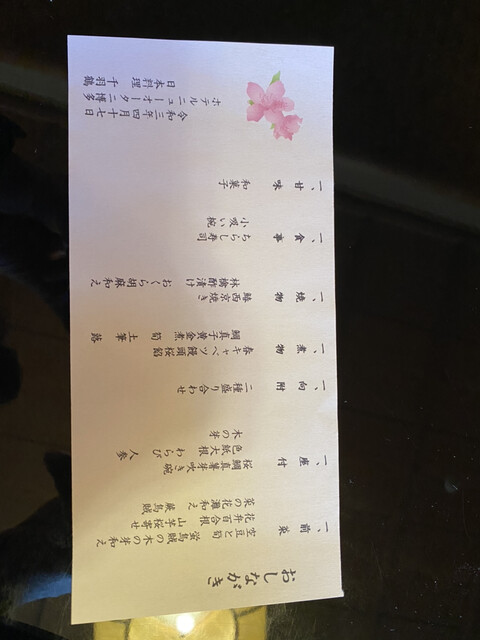 おしながき
一、前菜
筍と蛍烏賊の木の芽和え
空豆 山芋桜寄せ
花弁百合根 烏賊
菜の花の灘和え
一、座付
桜鯛真薯芽吹き碗
色紙大根 わらび 人参
木の芽
一、向附
二種盛り合わせ
一、煮物
春キャベツ饅頭桜餡
鯛真子黄金煮 筍 土筆 蕗
一、焼物
鰆西京焼き
林檎酢漬け おくら胡麻和え
一、食事
ちらし寿司
小吸い椀
一、甘味
和菓子
令和三年四月十七日
ホテルニューオータニ博多
日本料理 千羽鶴